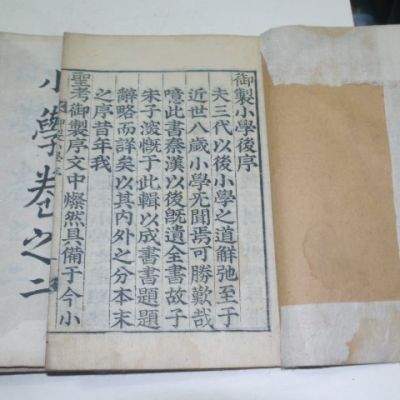 御製小學後序
夫三代以後小學之道解弛至于
近世八歲小學无聞焉可勝歎哉
噫此書秦漢以後旣遺全書故子
朱子深慨于此輯以成書書題題
辭略而詳矣以其內外之分本末
之序昔年我
聖考御製序文中燦然具備于今小
小學卷之二